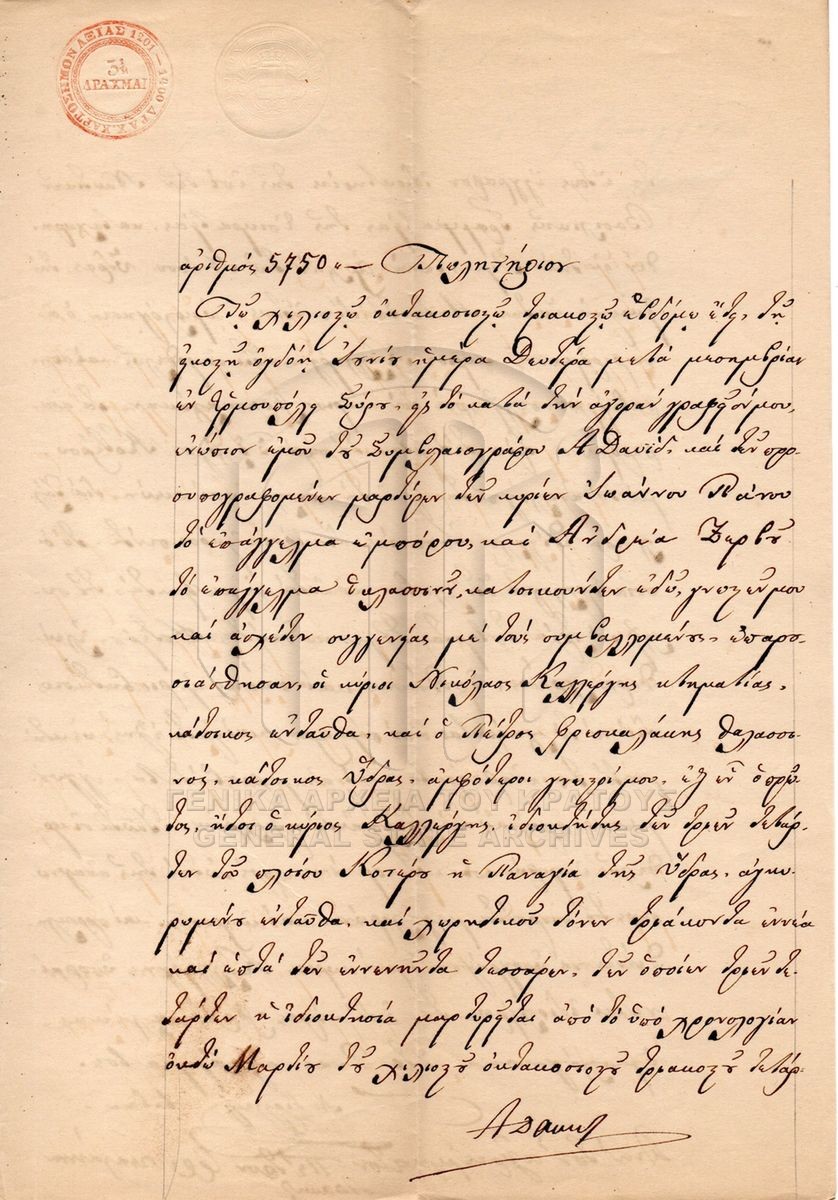 ΧΑΡΤΟΣΗΜΟΝ ΑΞΙΑΣ 1201—1800 ΔΡΑΧ.
3½
ΔΡΑΧΜΑΙ
ἀριθμός 5750 „— Πωλητήριον
Τῷ χιλιοςῷ ὀκτακοσιοςῷ τριακοςῷ ἑβδόμῳ ἔτει, τῇ
εἰκοςῇ ὀγδόῃ Ἰουνίου ἡμέρᾳ Δευτέρᾳ μετά μεσημβρίαν
ἐν Ἑρμουπόλει Σύρου, εἰς τό κατά τήν ἀγοράν γραφεῖόν μου,
ἐνώπιον ἐμοῦ τοῦ Συμβολαιογράφου Α Δαυίδ, καί τῶν προσ-
υπογραφομένων μαρτύρων τῶν κυρίων Ἰωάννου Πάνου
τό ἐπάγγελμα ἐμπόρου, καί Ἀνδρέα Ζερβοῦ
τό ἐπάγγελμα θαλασσινοῦ, κατοικούντων ἐδῶ, γνωςῶν μου
καί ἀσχέτων συγγενείας μέ τούς συμβαλλομένους, ἐπαρου-
σιάσθησαν, οἱ κύριοι Νικόλαος Καλλέργης κτηματίας,
κάτοικος ἐνταῦθα, καί ὁ Πέτρος Φρεσκαλάκης θαλασσι-
νός, κάτοικος Ὕδρας, ἀμφότεροι γνωςοί μου, ἐξ ὧν ὁ πρῶ-
τος, ἤτοι ὁ κύριος Καλλέργης, ἰδιοκτήτης τῶν τριῶν τετάρ-
των τοῦ πλοίου Κοτέρου ἡ Παναγία τῆς Ὕδρας, ἀγκυ-
ρωμένου ἐνταῦθα, καί χωρητικοῦ τόνων τριάκοντα ἐννέα
καί ἑπτά τῶν ἐννενήντα τεσσάρων, τῶν ὁποίων τριῶν τε-
τάρτων ἡ ἰδιοκτησία μαρτυρεῖται ἀπό τό ὑπό χρονολογίαν
ὀκτώ Μαρτίου τοῦ χιλιοςοῦ ὀκτακοσιοςοῦ τριακοςοῦ τετάρ-
ΑΔαυίδ
ΓΕΝΙΚΑ ΑΡΧΕΙΑ ΤΟΥ ΚΡΑΤΟΥΣ
GENERAL STATE ARCHIVES